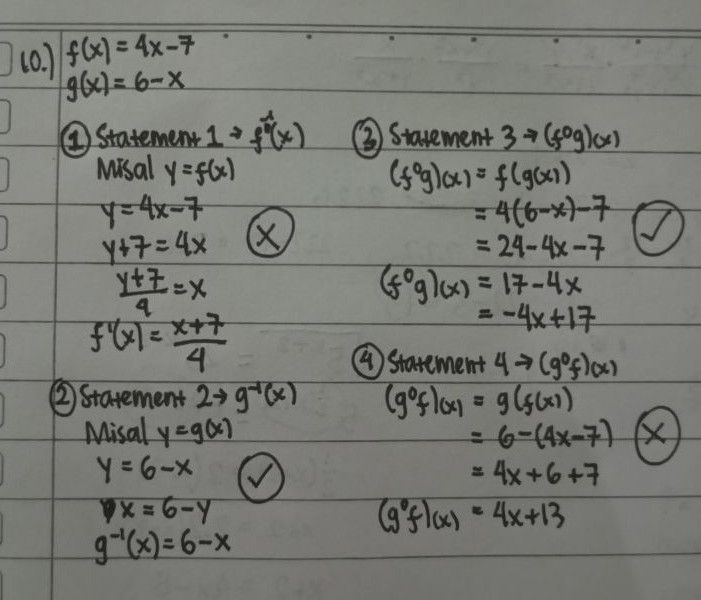 10.) f(x) = 4x-7
g(x) = 6-x
① Statement 1 → f⁻¹(x)
Misal y = f(x)
y = 4x-7
y+7 = 4x
y+7/4 = x
f¹(x) = x+7/4
② Statement 2 → g⁻¹(x)
Misal y = g(x)
y = 6-x
x = 6-y
g⁻¹(x) = 6-x
③ Statement 3 → (f°g)(x)
(f°g)(x) = f(g(x))
= 4(6-x)-7
= 24-4x-7
(f°g)(x) = 17-4x
= -4x+17
④ Statement 4 → (g°f)(x)
(g°f)(x) = g(f(x))
= 6-(4x-7)
= 4x+6+7
(g°f)(x) = 4x+13